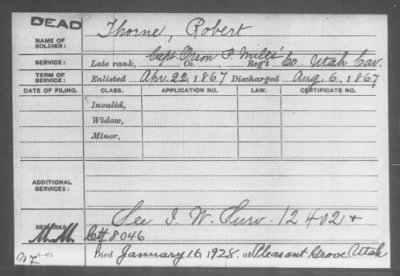 DEAD
NAME OF SOLDIER: Thorne, Robert
Capt. Orson P. Miles'
SERVICE: Late rank, Co. Reg't Co. Utah Cav.
TERM OF SERVICE: Enlisted Apr. 22, 1867 Discharged Aug. 6, 1867
DATE OF FILING. CLASS. APPLICATION NO. LAW. CERTIFICATE NO.
Invalid,
Widow,
Minor,
ADDITIONAL SERVICES:
See I. W. Surv. 12402 +
REMARKS: M.M. Ctf 8046
Died January 16, 1928, at Pleasant Grove, Utah